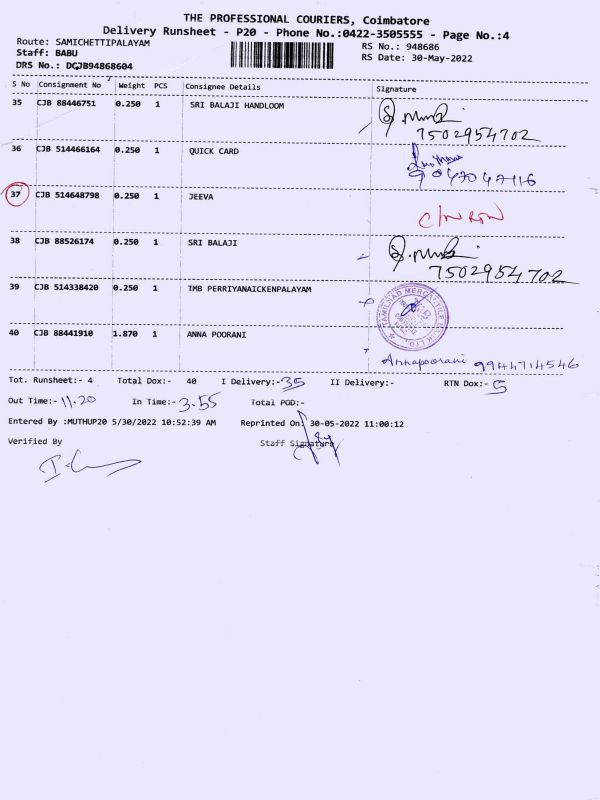 THE PROFESSIONAL COURIERS, Coimbatore
Delivery Runsheet - P20 - Phone No.:0422-3505555 - Page No.:4
Route: SAMICHETTIPALAYAM
RS No.: 948686
Staff: BABU
RS Date: 30-May-2022
DRS No.: DCJB94868604
S No Consignment No Weight PCS Consignee Details Signature
35 CJB 88446751 0.250 1 SRI BALAJI HANDLOOM
7502954702
36 CJB 514466164 0.250 1 QUICK CARD
37 CJB 514648798 0.250 1 JEEVA
C/N RTN
38 CJB 88526174 0.250 1 SRI BALAJI
7502954702
39 CJB 514338420 0.250 1 TMB PERRIYANAICKENPALAYAM
TAMILNAD MERCANTILE BANK LTD
40 CJB 88441910 1.870 1 ANNA POORANI
Annapoorani 9944714546
Tot. Runsheet:- 4 Total Dox:- 40 I Delivery:-35 II Delivery:- RTN Dox:- 5
Out Time:- 11.20 In Time:- 3.55 Total POD:-
Entered By :MUTHUP20 5/30/2022 10:52:39 AM Reprinted On: 30-05-2022 11:00:12
Verified By Staff Signature